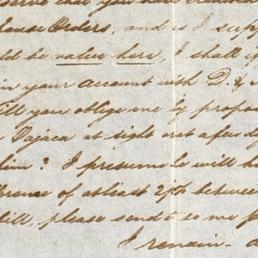 serve that you have
House Orders, and is I supp
ould be value here, I shall if
in your account with D. &
Will you oblige me by profes
Oajaca at sight not after dy
him? I presume he will ha
erence of at least 2 pc between
bill, please send to me f
I remain